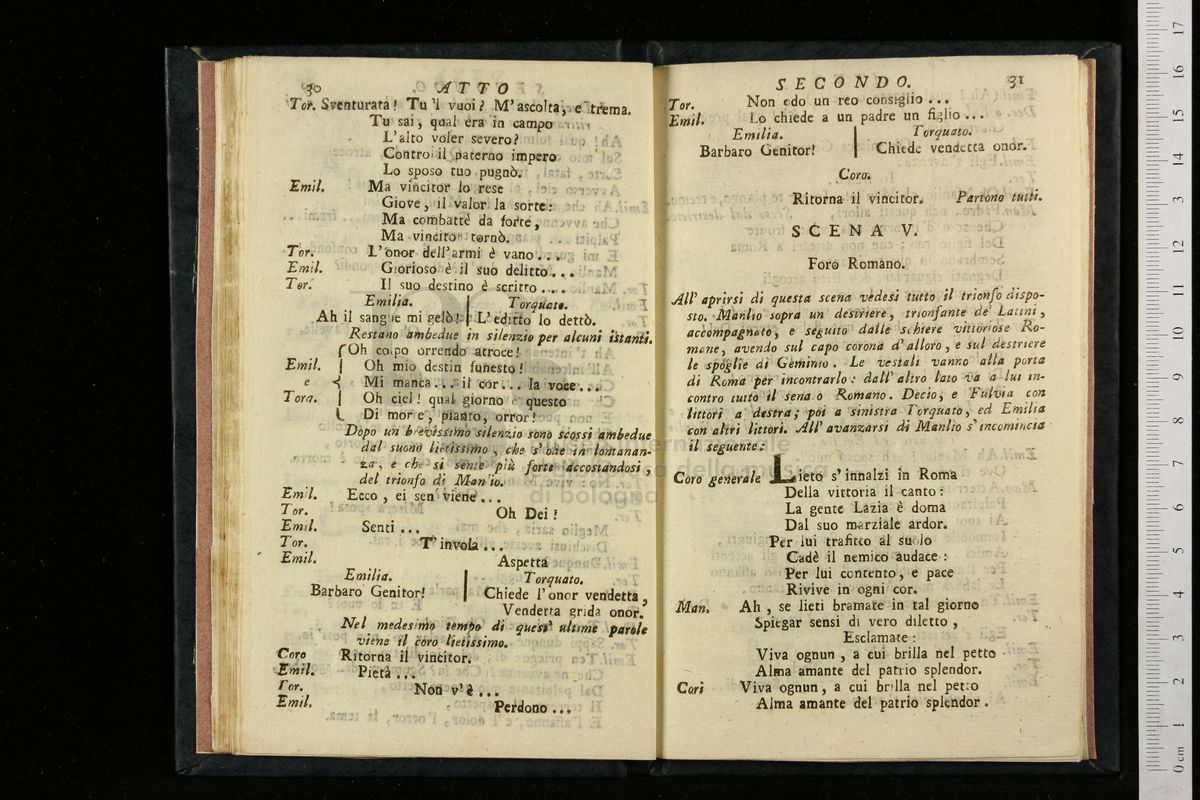 30 ATTO
Tor. Sventurata! Tu 'l vuoi? M'ascolta, e trema.
Tu sai, qual era in campo
L'alto voler severo?
Contro il paterno impero
Lo sposo tuo pugnò.
Emil. Ma vincitor lo rese
Giove, il valor la sorte:
Ma combattè da forte,
Ma vincitor tornò.
Tor. L'onor dell'armi è vano...
Emil. Glorioso è il suo delitto...
Tor. Il suo destino è scritto...
Emilia. Torquato.
Ah il sangue mi gelò! L'editto lo dettò.
Restano ambedue in silenzio per alcuni istanti.
Oh colpo orrendo atroce!
Emil. Oh mio destin funesto!
e Mi manca... il cor... la voce...
Torq. Oh ciel! qual giorno è questo
Di morte, pianto, orror!
Dopo un brevissimo silenzio sono scossi ambedue
dal suono lietissimo, che s'ode in lontanan-
za, e che si sente più forte accostandosi,
del trionfo di Manlio.
Emil. Ecco, ei sen viene...
Tor. Oh Dei!
Emil. Senti...
Tor. T'invola...
Emil. Aspetta
Emilia. Torquato.
Barbaro Genitor! Chiede l'onor vendetta,
Vendetta grida onor.
Nel medesimo tempo di quest' ultime parole
viene il coro lietissimo.
Coro Ritorna il vincitor.
Emil. Pietà...
Tor. Non v'è...
Emil. Perdono...
SECONDO. 31
Tor. Non odo un reo consiglio...
Emil. Lo chiede a un padre un figlio...
Emilia. Torquato.
Barbaro Genitor! Chiede vendetta onor.
Coro.
Ritorna il vincitor. Partono tutti.
SCENA V.
Foro Romano.
All' aprirsi di questa scena vedesi tutto il trionfo dispo-
sto. Manlio sopra un destriere, trionfante de' Latini,
accompagnato, e seguito dalle schiere vittoriose Ro-
mane, avendo sul capo corona d'alloro, e sul destriere
le spoglie di Geminio. Le vestali vanno alla porta
di Roma per incontrarlo: dall' altro lato va a lui in-
contro tutto il senato Romano. Decio, e Fulvia con
littori a destra; poi a sinistra Torquato, ed Emilia
con altri littori. All' avanzarsi di Manlio s'incomincia
il seguente:
Coro generale Lieto s'innalzi in Roma
Della vittoria il canto:
La gente Lazia è doma
Dal suo marziale ardor.
Per lui trafitto al suolo
Cadè il nemico audace:
Per lui contento, e pace
Rivive in ogni cor.
Man. Ah, se lieti bramate in tal giorno
Spiegar sensi di vero diletto,
Esclamate:
Viva ognun, a cui brilla nel petto
Alma amante del patrio splendor.
Cori Viva ognun, a cui brilla nel petto
Alma amante del patrio splendor.